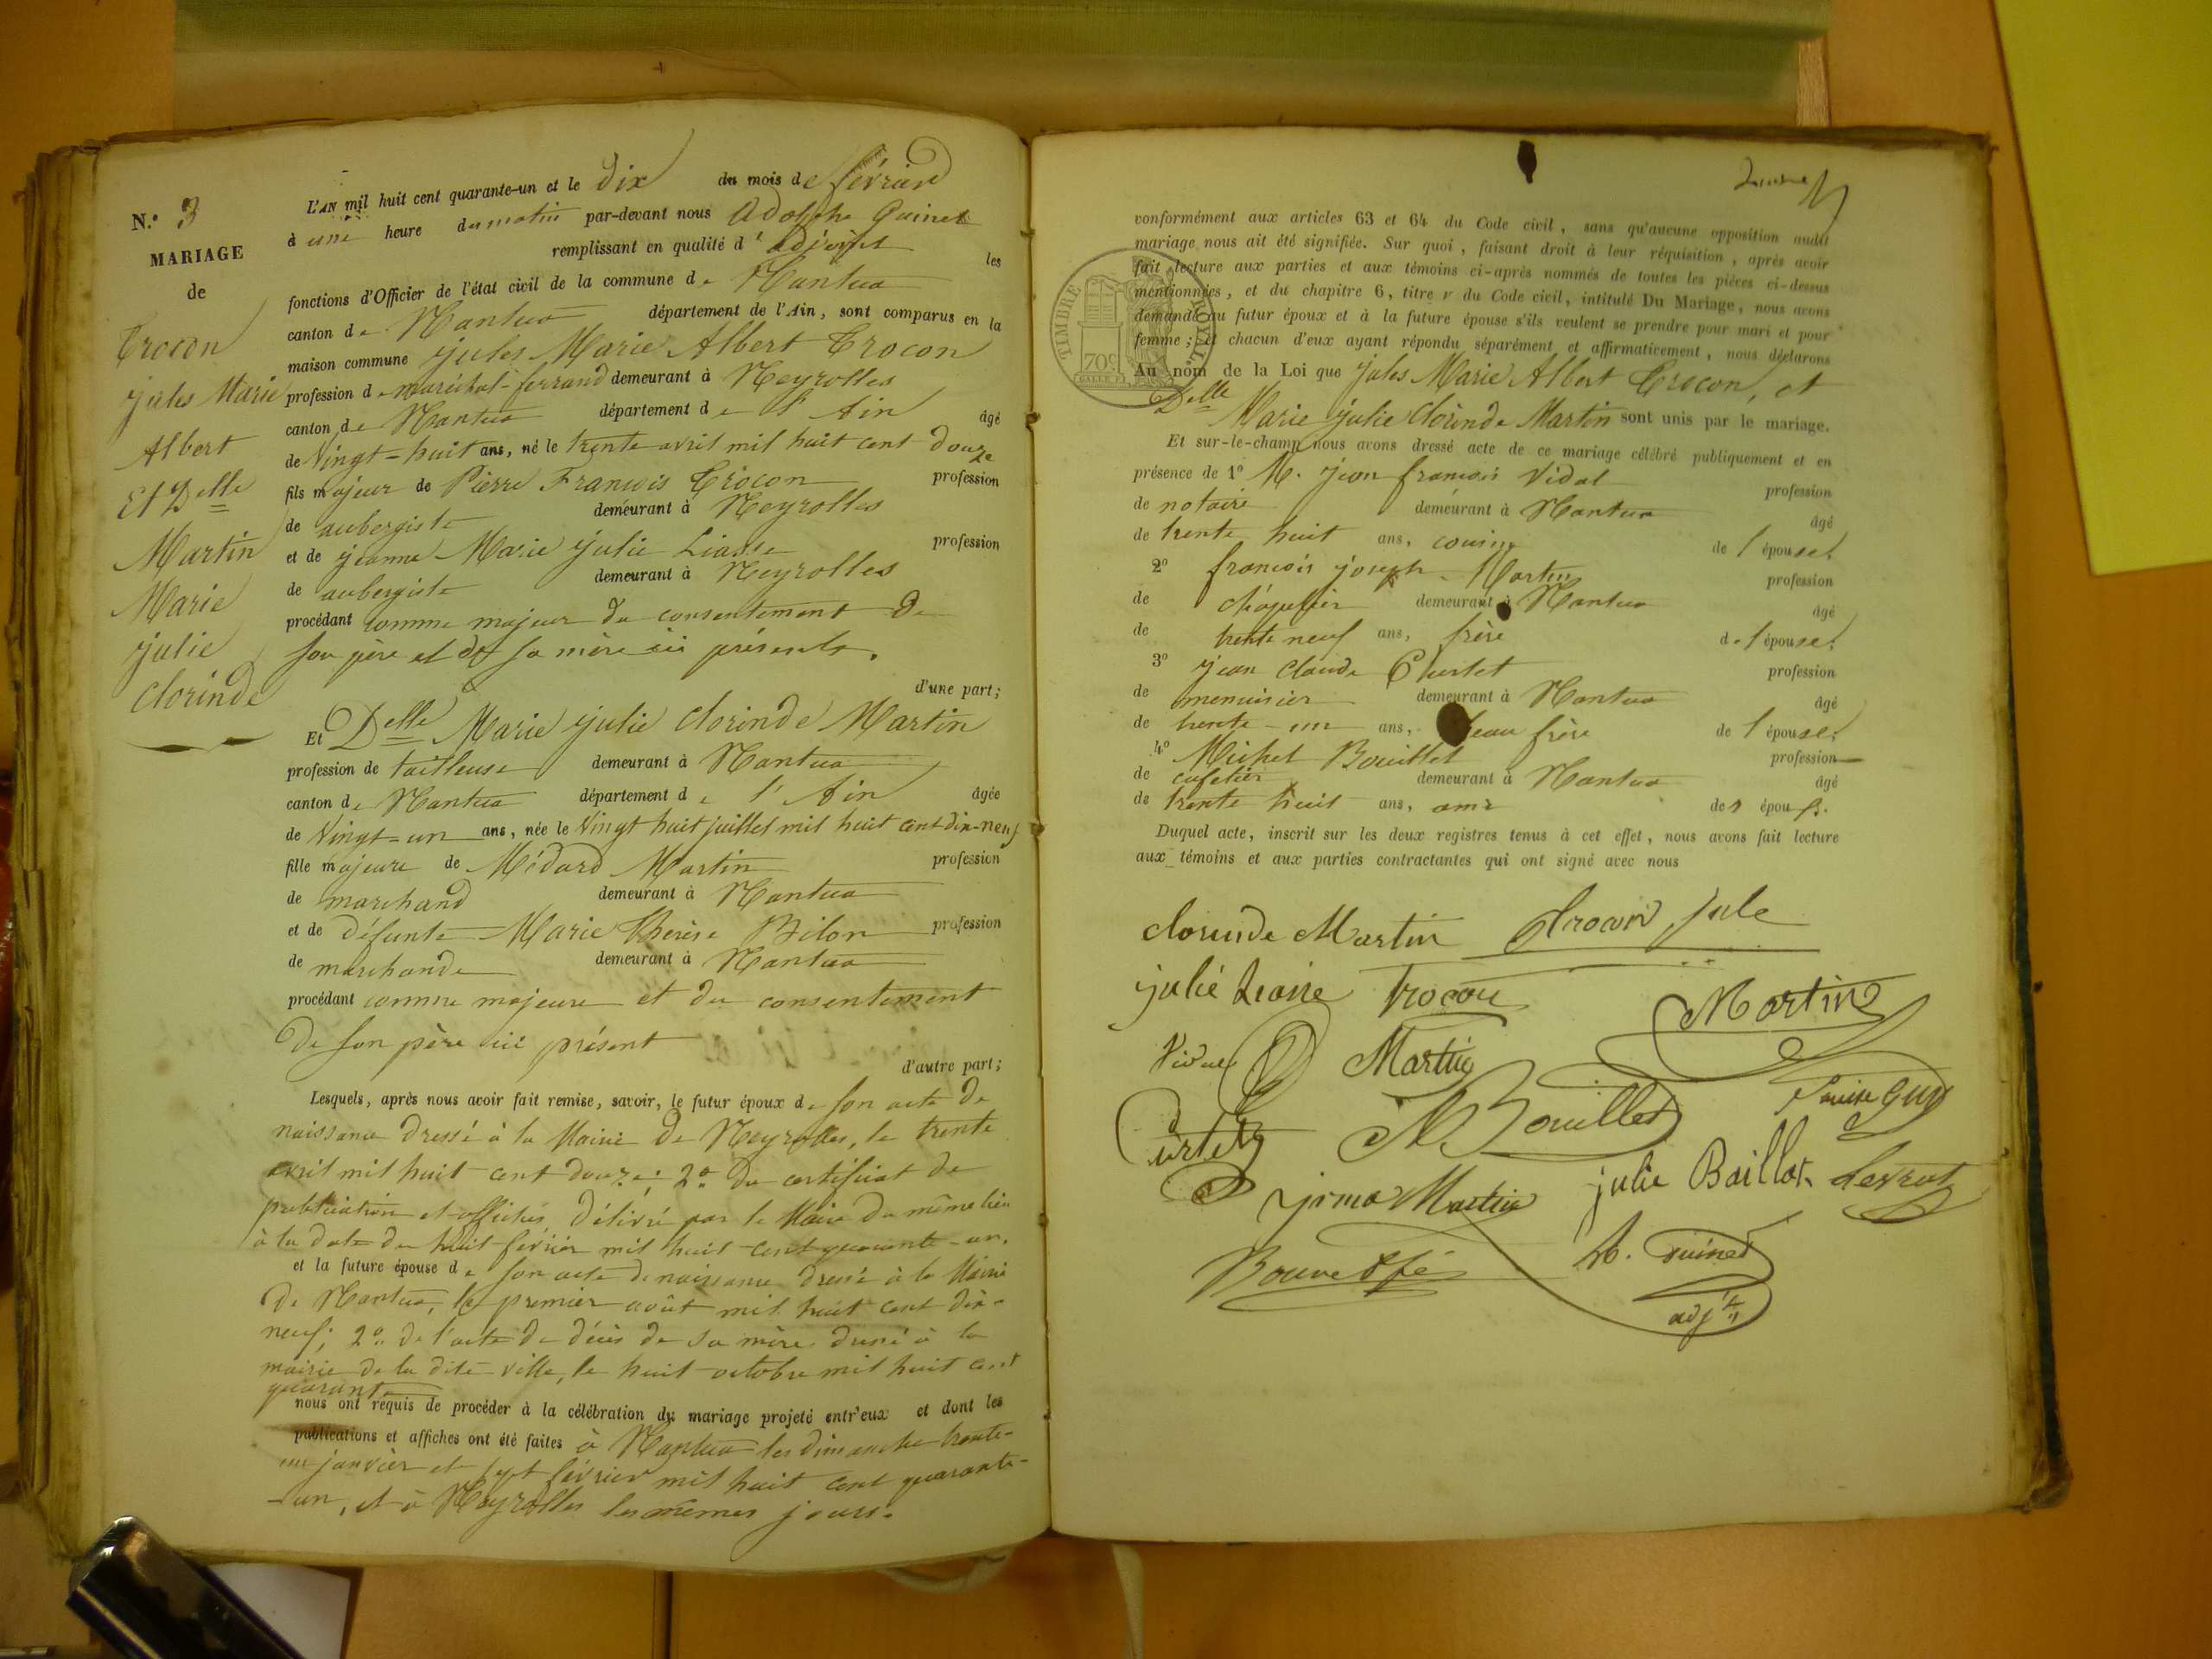 N.º 3
MARIAGE
de
Crocon
jules Marie
Albert
Et Delle
Martin
Marie
julie
Clorinde
L'AN mil huit cent quarante-un et le dix du mois de février
à une heure du matin par-devant nous Adolphe Guinet
remplissant en qualité d'adjoint les
fonctions d'Officier de l'état civil de la commune de Nantua
canton de Nantua département de l'Ain, sont comparus en la
maison commune jules Marie Albert Crocon
profession de maréchal-ferrand demeurant à Neyrolles
canton de Nantua département de l'Ain âgé
de Vingt-huit ans, né le trente avril mil huit cent douze
fils majeur de Pierre François Crocon profession
de aubergiste demeurant à Neyrolles
et de jeanne Marie julie Liasse profession
de aubergiste demeurant à Neyrolles
procédant comme majeur du consentement de
son père et de sa mère ici présents.
d'une part;
Et Delle Marie julie Clorinde Martin
profession de tailleuse demeurant à Nantua
canton de Nantua département de l'Ain âgée
de Vingt-un ans, née le Vingt huit juillet mil huit cent dix-neuf
fille majeure de Médard Martin profession
de marchand demeurant à Nantua
et de défunte Marie Thérèse Bilon profession
de marchande demeurant à Nantua
procédant comme majeure et du consentement
de son père ici présent
d'autre part;
Lesquels, après nous avoir fait remise, savoir, le futur époux de son acte de
naissance dressé à la Mairie de Neyrolles, le trente
avril mil huit cent douze; 2º du certificat de
publication et affiches délivré par le Maire du même lieu
à la date du huit février mil huit cent quarante-un.
et la future épouse de son acte de naissance dressé à la Mairie
de Nantua, le premier août mil huit cent dix-
neuf; 2º de l'acte de décès de sa mère dressé à la
mairie de la dite ville, le huit octobre mil huit cent
quarante
nous ont requis de procéder à la célébration du mariage projeté entr'eux et dont les
publications et affiches ont été faites à Nantua les dimanche trente-
un janvier et sept février mil huit cent quarante-
-un, et à Neyrolles les mêmes jours.
conformément aux articles 63 et 64 du Code civil, sans qu'aucune opposition audit
mariage nous ait été signifiée. Sur quoi, faisant droit à leur réquisition, après avoir
fait lecture aux parties et aux témoins ci-après nommés de toutes les pièces ci-dessus
mentionnées, et du chapitre 6, titre v du Code civil, intitulé Du Mariage, nous avons
demandé au futur époux et à la future épouse s'ils veulent se prendre pour mari et pour
femme; et chacun d'eux ayant répondu séparément et affirmativement, nous déclarons
Au nom de la Loi que jules Marie Albert Crocon, et
Delle Marie julie Clorinde Martin sont unis par le mariage.
TIMBRE ROYAL
70c
Et sur-le-champ nous avons dressé acte de ce mariage célébré publiquement et en
présence de 1º M. jean françois Vidal profession
de notaire demeurant à Nantua âgé
de trente huit ans, cousin de l'épouse.
2º françois joseph Martin profession
de demeurant à Nantua âgé
de trente neuf ans, frère de l'épouse.
3º jean Claude Curtet profession
de menuisier demeurant à Nantua âgé
de trente-un ans, beau frère de l'épouse.
4º Michel Bouillet profession
de cafetier demeurant à Nantua âgé
de trente huit ans, ami des époux.
Duquel acte, inscrit sur les deux registres tenus à cet effet, nous avons fait lecture
aux témoins et aux parties contractantes qui ont signé avec nous
clorinde Martin Crocon jule
julie Liasse Trocon Martin
Vidal Martin
Curtet MBouillet Louise Guy
Martin julie Baillot
A. Guinet
adjt